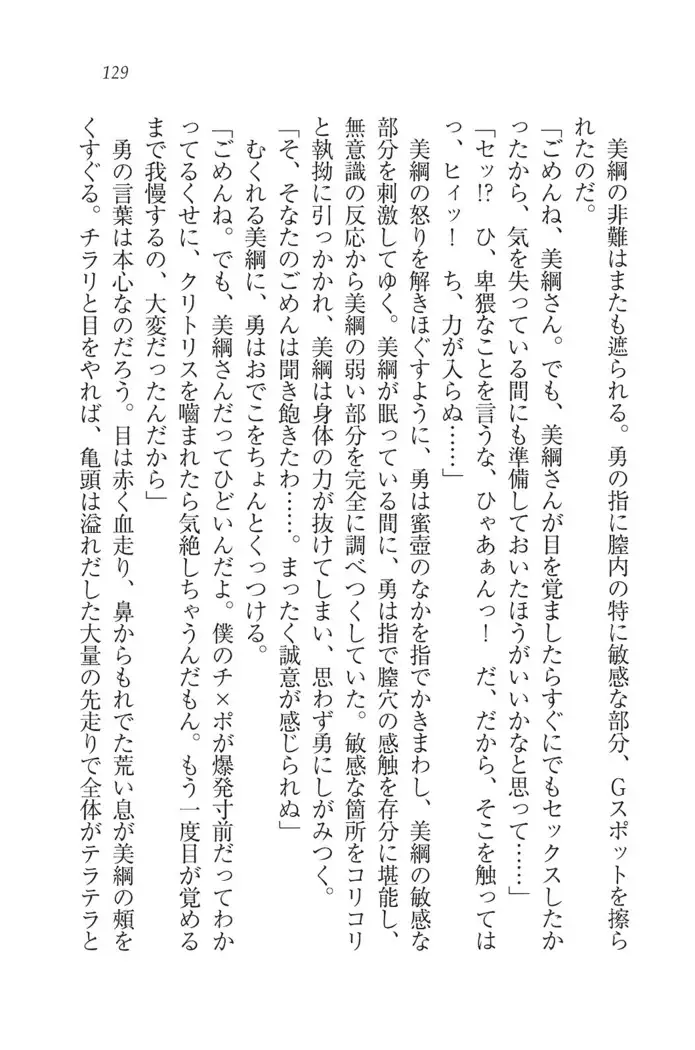 129
美綱の非難はまたも遮られる。勇の指に膣内の特に敏感な部分、Gスポットを擦ら
れたのだ。
「ごめんね、美綱さん。でも、美綱さんが目を覚ましたらすぐにでもセックスしたか
ったから、気を失っている間にも準備しておいたほうがいいかなと思って……」
「セッ!?　ひ、卑猥なことを言うな、ひゃあぁんっ！　だ、だから、そこを触っては
っ、ヒィッ！　ち、力が入らぬ……」
美綱の怒りを解きほぐすように、勇は蜜壺のなかを指でかきまわし、美綱の敏感な
部分を刺激してゆく。美綱が眠っている間に、勇は指で膣穴の感触を存分に堪能し、
無意識の反応から美綱の弱い部分を完全に調べつくしていた。敏感な箇所をコリコリ
と執拗に引っかかれ、美綱は身体の力が抜けてしまい、思わず勇にしがみつく。
「そ、そなたのごめんは聞き飽きたわ……。まったく誠意が感じられぬ」
むくれる美綱に、勇はおでこをちょんとくっつける。
「ごめんね。でも、美綱さんだってひどいんだよ。僕のチ×ポが爆発寸前だってわか
ってるくせに、クリトリスを嚙まれたら気絶しちゃうんだもん。もう一度目が覚める
まで我慢するの、大変だったんだから」
勇の言葉は本心なのだろう。目は赤く血走り、鼻からもれでた荒い息が美綱の頰を
くすぐる。チラリと目をやれば、亀頭は溢れだした大量の先走りで全体がテラテラと